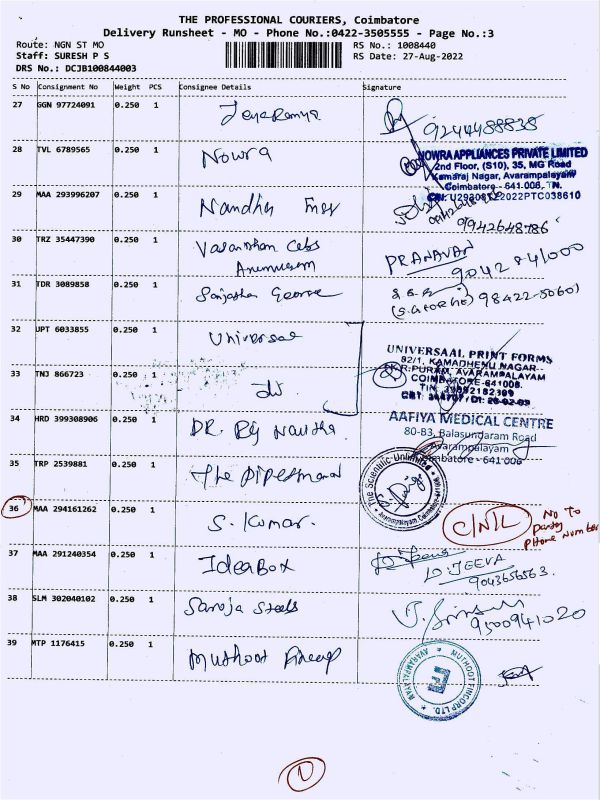 THE PROFESSIONAL COURIERS, Coimbatore
Delivery Runsheet - MO - Phone No.:0422-3505555 - Page No.:3
Route: NGN ST MO
Staff: SURESH P S
DRS No.: DCJB100844003
RS No.: 1008440
RS Date: 27-Aug-2022
S No Consignment No Weight PCS Consignee Details Signature
27 GGN 97724091 0.250 1 Jeya Ramya 9244488838
28 TVL 6789565 0.250 1 Nowra
NOWRA APPLIANCES PRIVATE LIMITED
2nd Floor, (S10), 35, MG Road
Kamaraj Nagar, Avarampalayam
Coimbatore - 641 006, TN.
29 MAA 293996207 0.250 1 Nandha
9942648786
30 TRZ 35447390 0.250 1 PRANAVAN
31 TDR 3089858 0.250 1 George
(S.GEORGE) 98422-50601
32 UPT 6033855 0.250 1 Universal
UNIVERSAAL PRINT FORMS
82/1, KAMADHENU NAGAR
K.R.PURAM, AVARAMPALAYAM
COIMBATORE-641006.
33 TNJ 866723 0.250 1
34 HRD 399308906 0.250 1 DR.
AAFIYA MEDICAL CENTRE
80-83, Balasundaram Road
Avarampalayam
Coimbatore - 641 006
35 TRP 2539881 0.250 1 The
The Scientific Unlimited
36 MAA 294161262 0.250 1 S. Kumar.
No To
party
Phone Number
37 MAA 291240354 0.250 1 IdeaBox
D.JEEVA
9043656563
38 SLM 302040102 0.250 1 Saroja Steels
9500941020
39 MTP 1176415 0.250 1 Muthoot Fincorp
MUTHOOT FINCORP LTD.
AVARAMPALAYAM
1